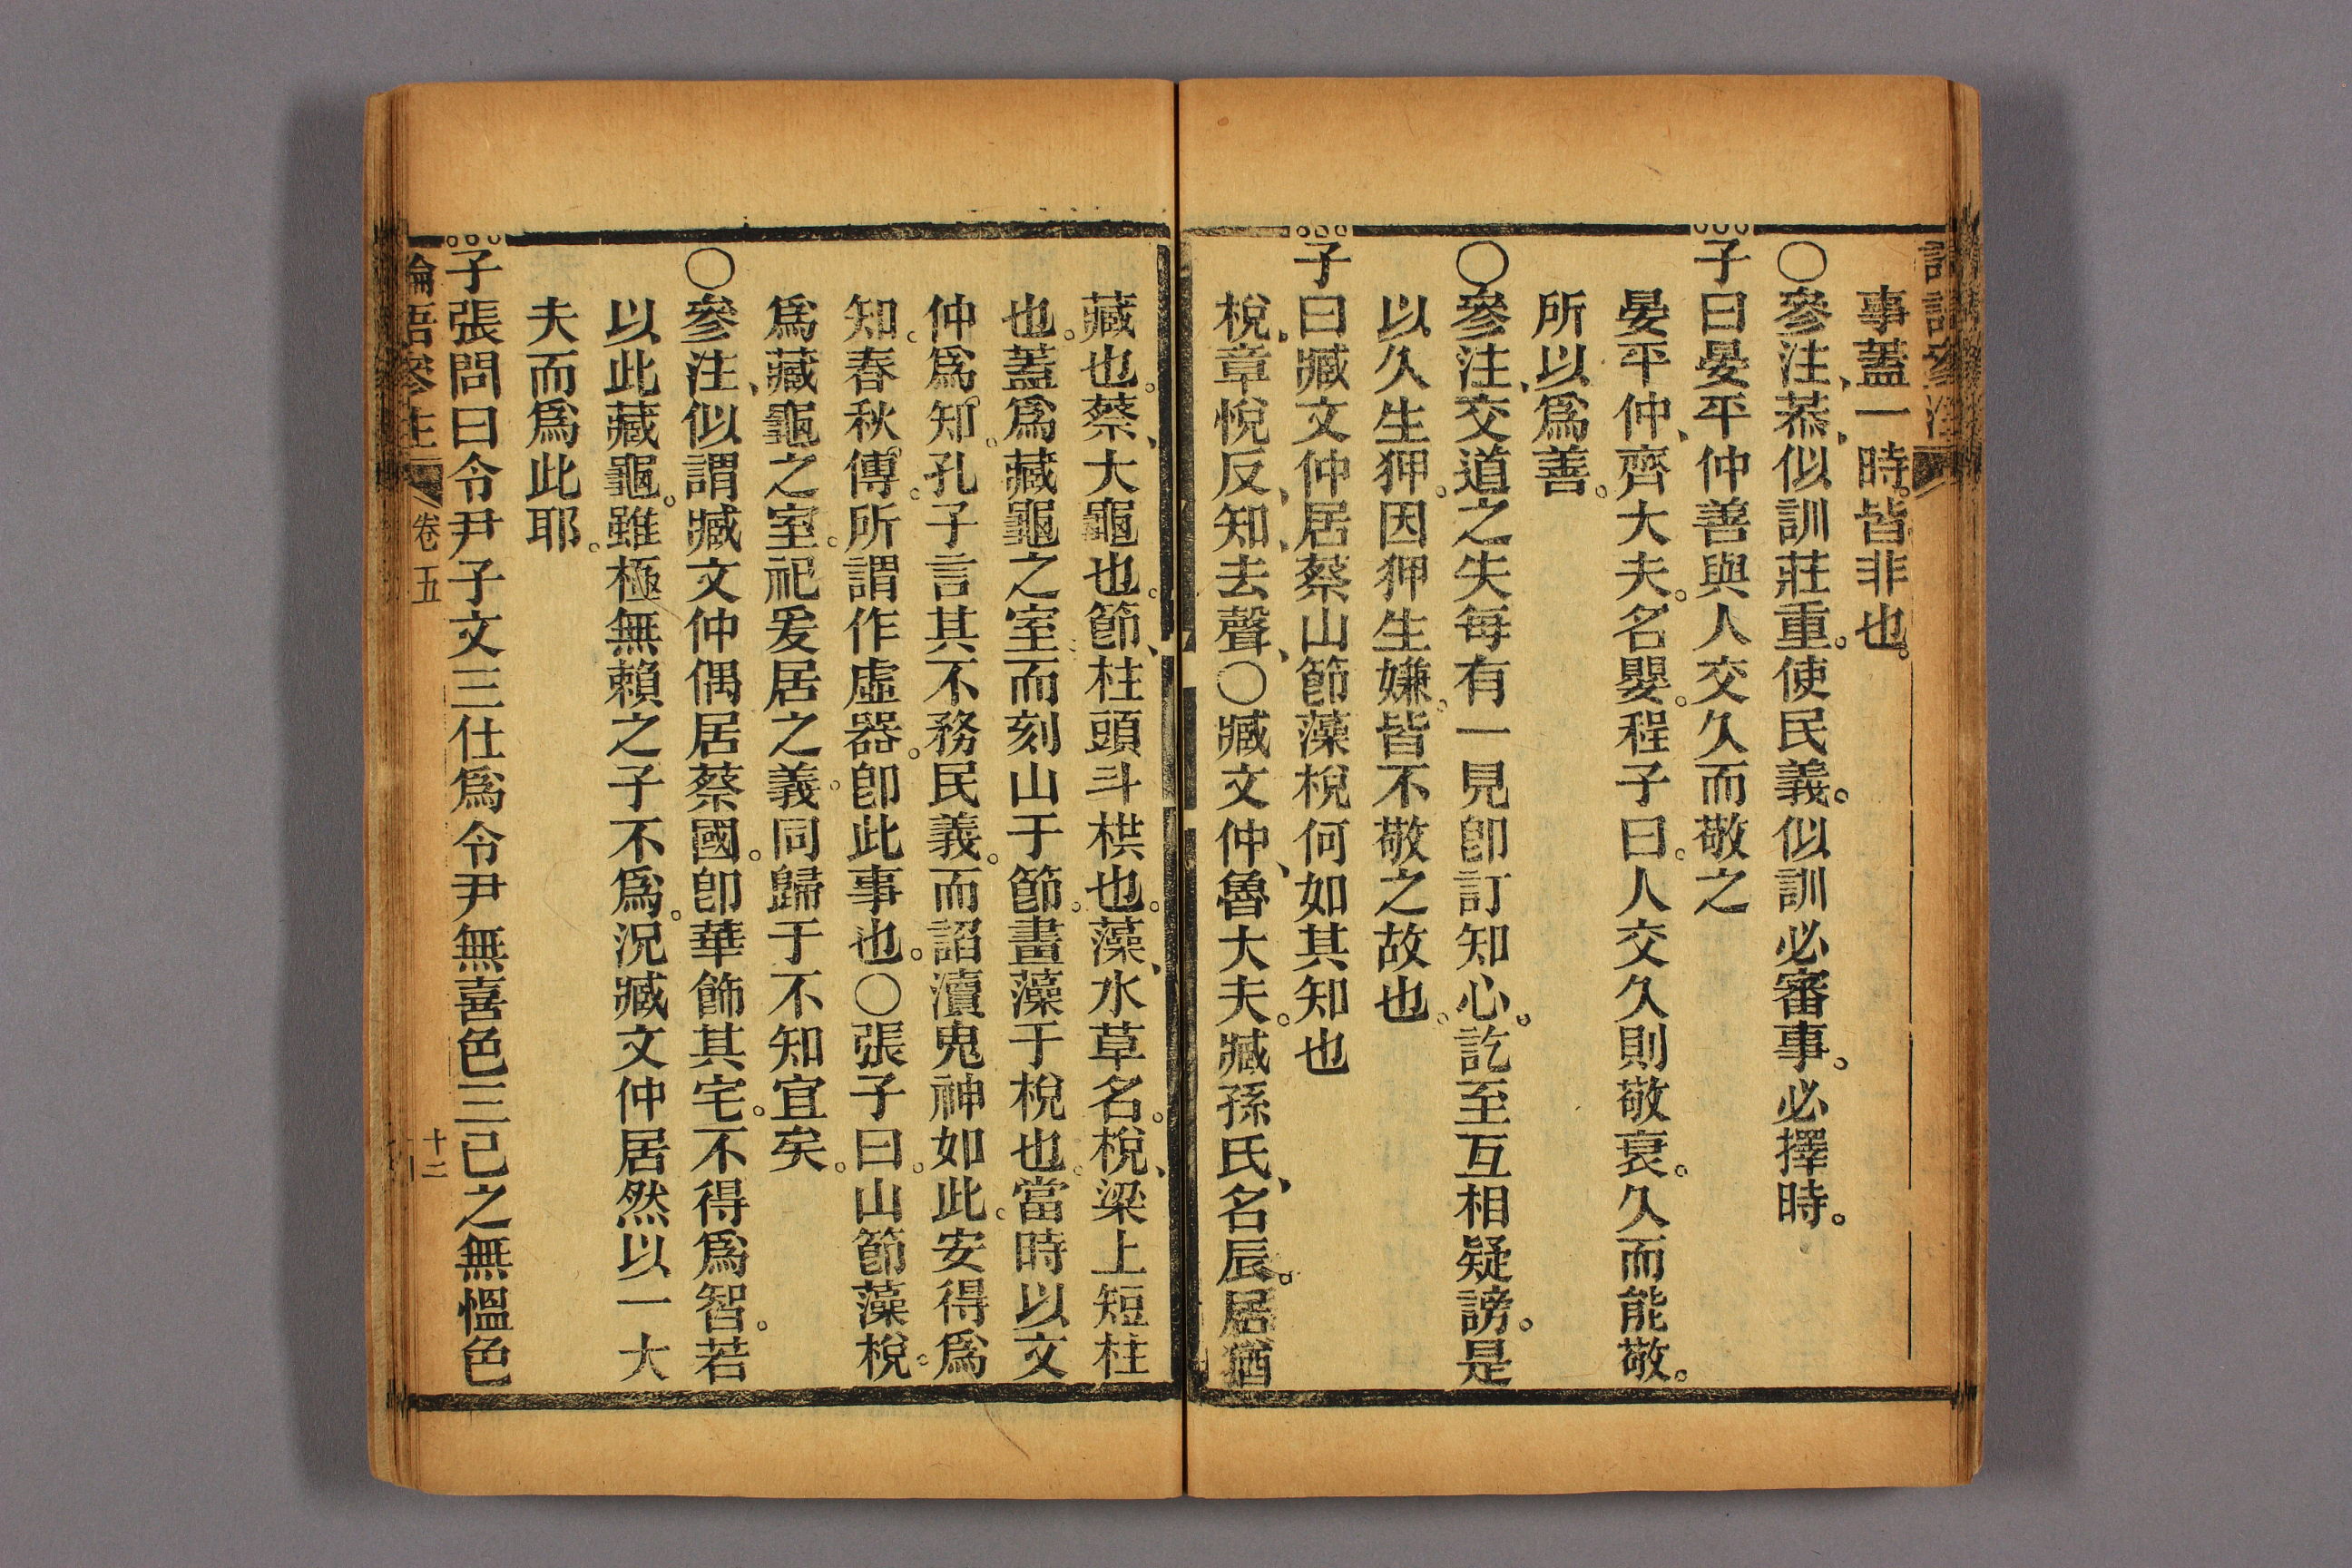 事蓋一時。皆非也。
〇參注、恭、似訓莊重。使民義。似訓必審事。必擇時。
子曰晏平仲善與人交久而敬之
晏平仲、齊大夫。名嬰。程子曰。人交久則敬衰。久而能敬。
所以爲善。
〇參注、交道之失每有一見卽訂知心。訖至互相疑謗。是
以久生狎。因狎生嫌。皆不敬之故也。
子曰臧文仲居蔡山節藻梲何如其知也
梲。章悅反、知、去聲、〇臧文仲、魯大夫。臧孫氏、名辰。居猶
藏也。蔡、大龜也。節、柱頭斗栱也。藻、水草名。梲、梁上短柱
也。蓋爲藏龜之室而刻山于節。畫藻于梲也。當時以文
仲爲知。孔子言其不務民義。而諂瀆鬼神如此。安得爲
知。春秋傳。所謂作虛器。卽此事也。〇張子曰。山節藻梲。
爲藏龜之室。祀爰居之義。同歸于不知宜矣。
〇參注、似謂臧文仲偶居蔡國。卽華飾其宅。不得爲智。若
以此藏龜。雖極無賴之子不爲。況臧文仲居然以一大
夫而爲此耶。
子張問曰令尹子文三仕爲令尹無喜色三已之無慍色
論語參注 卷五 十二